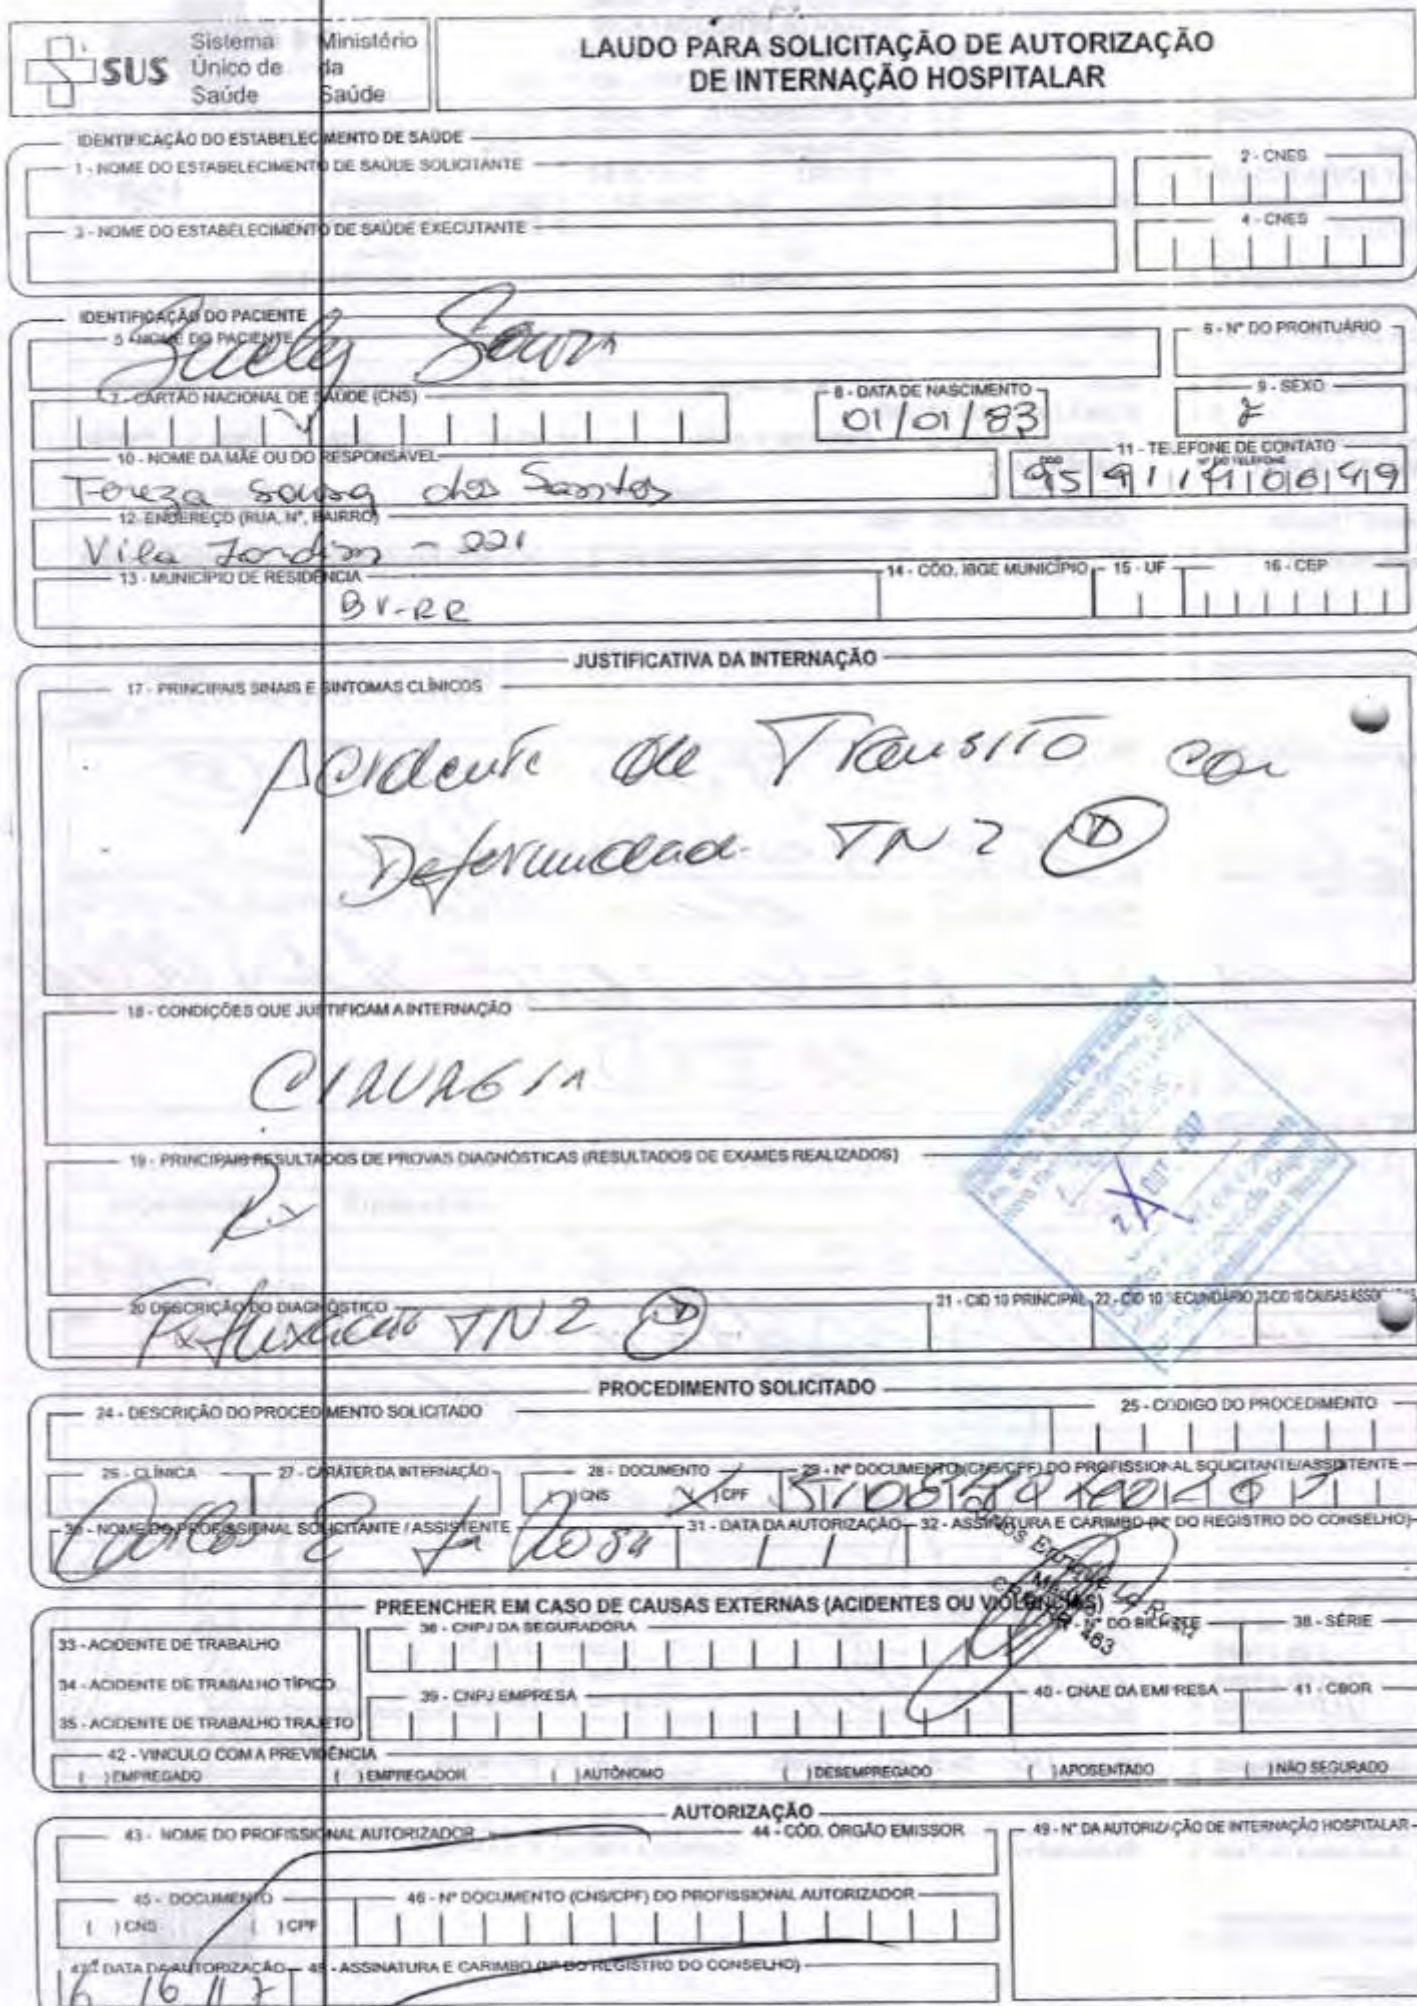 SUS
Sistema Único de Saúde
Ministério da Saúde
LAUDO PARA SOLICITAÇÃO DE AUTORIZAÇÃO
DE INTERNAÇÃO HOSPITALAR
IDENTIFICAÇÃO DO ESTABELECIMENTO DE SAÚDE
1 - NOME DO ESTABELECIMENTO DE SAÚDE SOLICITANTE
2 - CNES
3 - NOME DO ESTABELECIMENTO DE SAÚDE EXECUTANTE
4 - CNES
IDENTIFICAÇÃO DO PACIENTE
5 - NOME DO PACIENTE
6 - N° DO PRONTUÁRIO
Suely Souza
7 - CARTÃO NACIONAL DE SAÚDE (CNS)
8 - DATA DE NASCIMENTO
9 - SEXO
01/01/83
10 - NOME DA MÃE OU DO RESPONSÁVEL
11 - TELEFONE DE CONTATO
N° DO TELEFONE
Tereza Sousa dos Santos
95
12 - ENDEREÇO (RUA, N°, BAIRRO)
Vila Jardim - 221
13 - MUNICÍPIO DE RESIDÊNCIA
14 - CÓD. IBGE MUNICÍPIO
15 - UF
16 - CEP
BV-RR
JUSTIFICATIVA DA INTERNAÇÃO
17 - PRINCIPAIS SINAIS E SINTOMAS CLÍNICOS
Acidente de Transito com
Deformidade TNZ (D)
18 - CONDIÇÕES QUE JUSTIFICAM A INTERNAÇÃO
CIRURGIA
19 - PRINCIPAIS RESULTADOS DE PROVAS DIAGNÓSTICAS (RESULTADOS DE EXAMES REALIZADOS)
Rx
20 DESCRIÇÃO DO DIAGNÓSTICO
21 - CID 10 PRINCIPAL
22 - CID 10 SECUNDÁRIO
23-CID 10 CAUSAS ASSOCIADAS
TNZ (D)
PROCEDIMENTO SOLICITADO
24 - DESCRIÇÃO DO PROCEDIMENTO SOLICITADO
25 - CÓDIGO DO PROCEDIMENTO
26 - CLÍNICA
27 - CARÁTER DA INTERNAÇÃO
28 - DOCUMENTO
29 - N° DOCUMENTO (CNS/CPF) DO PROFISSIONAL SOLICITANTE/ASSISTENTE
( ) CNS
(X) CPF
30 - NOME DO PROFISSIONAL SOLICITANTE / ASSISTENTE
31 - DATA DA AUTORIZAÇÃO
32 - ASSINATURA E CARIMBO (N° DO REGISTRO DO CONSELHO)
Carlos E La Rosa
PREENCHER EM CASO DE CAUSAS EXTERNAS (ACIDENTES OU VIOLÊNCIAS)
33 - ACIDENTE DE TRABALHO
36 - CNPJ DA SEGURADORA
N° DO BILHETE
38 - SÉRIE
34 - ACIDENTE DE TRABALHO TÍPICO
39 - CNPJ EMPRESA
40 - CNAE DA EMPRESA
41 - CBOR
35 - ACIDENTE DE TRABALHO TRAJETO
42 - VINCULO COM A PREVIDÊNCIA
( ) EMPREGADO
( ) EMPREGADOR
( ) AUTÔNOMO
( ) DESEMPREGADO
( ) APOSENTADO
( ) NÃO SEGURADO
AUTORIZAÇÃO
43 - NOME DO PROFISSIONAL AUTORIZADOR
44 - CÓD. ÓRGÃO EMISSOR
49 - N° DA AUTORIZAÇÃO DE INTERNAÇÃO HOSPITALAR
45 - DOCUMENTO
46 - N° DOCUMENTO (CNS/CPF) DO PROFISSIONAL AUTORIZADOR
( ) CNS
( ) CPF
47 - DATA DA AUTORIZAÇÃO
48 - ASSINATURA E CARIMBO (N° DO REGISTRO DO CONSELHO)